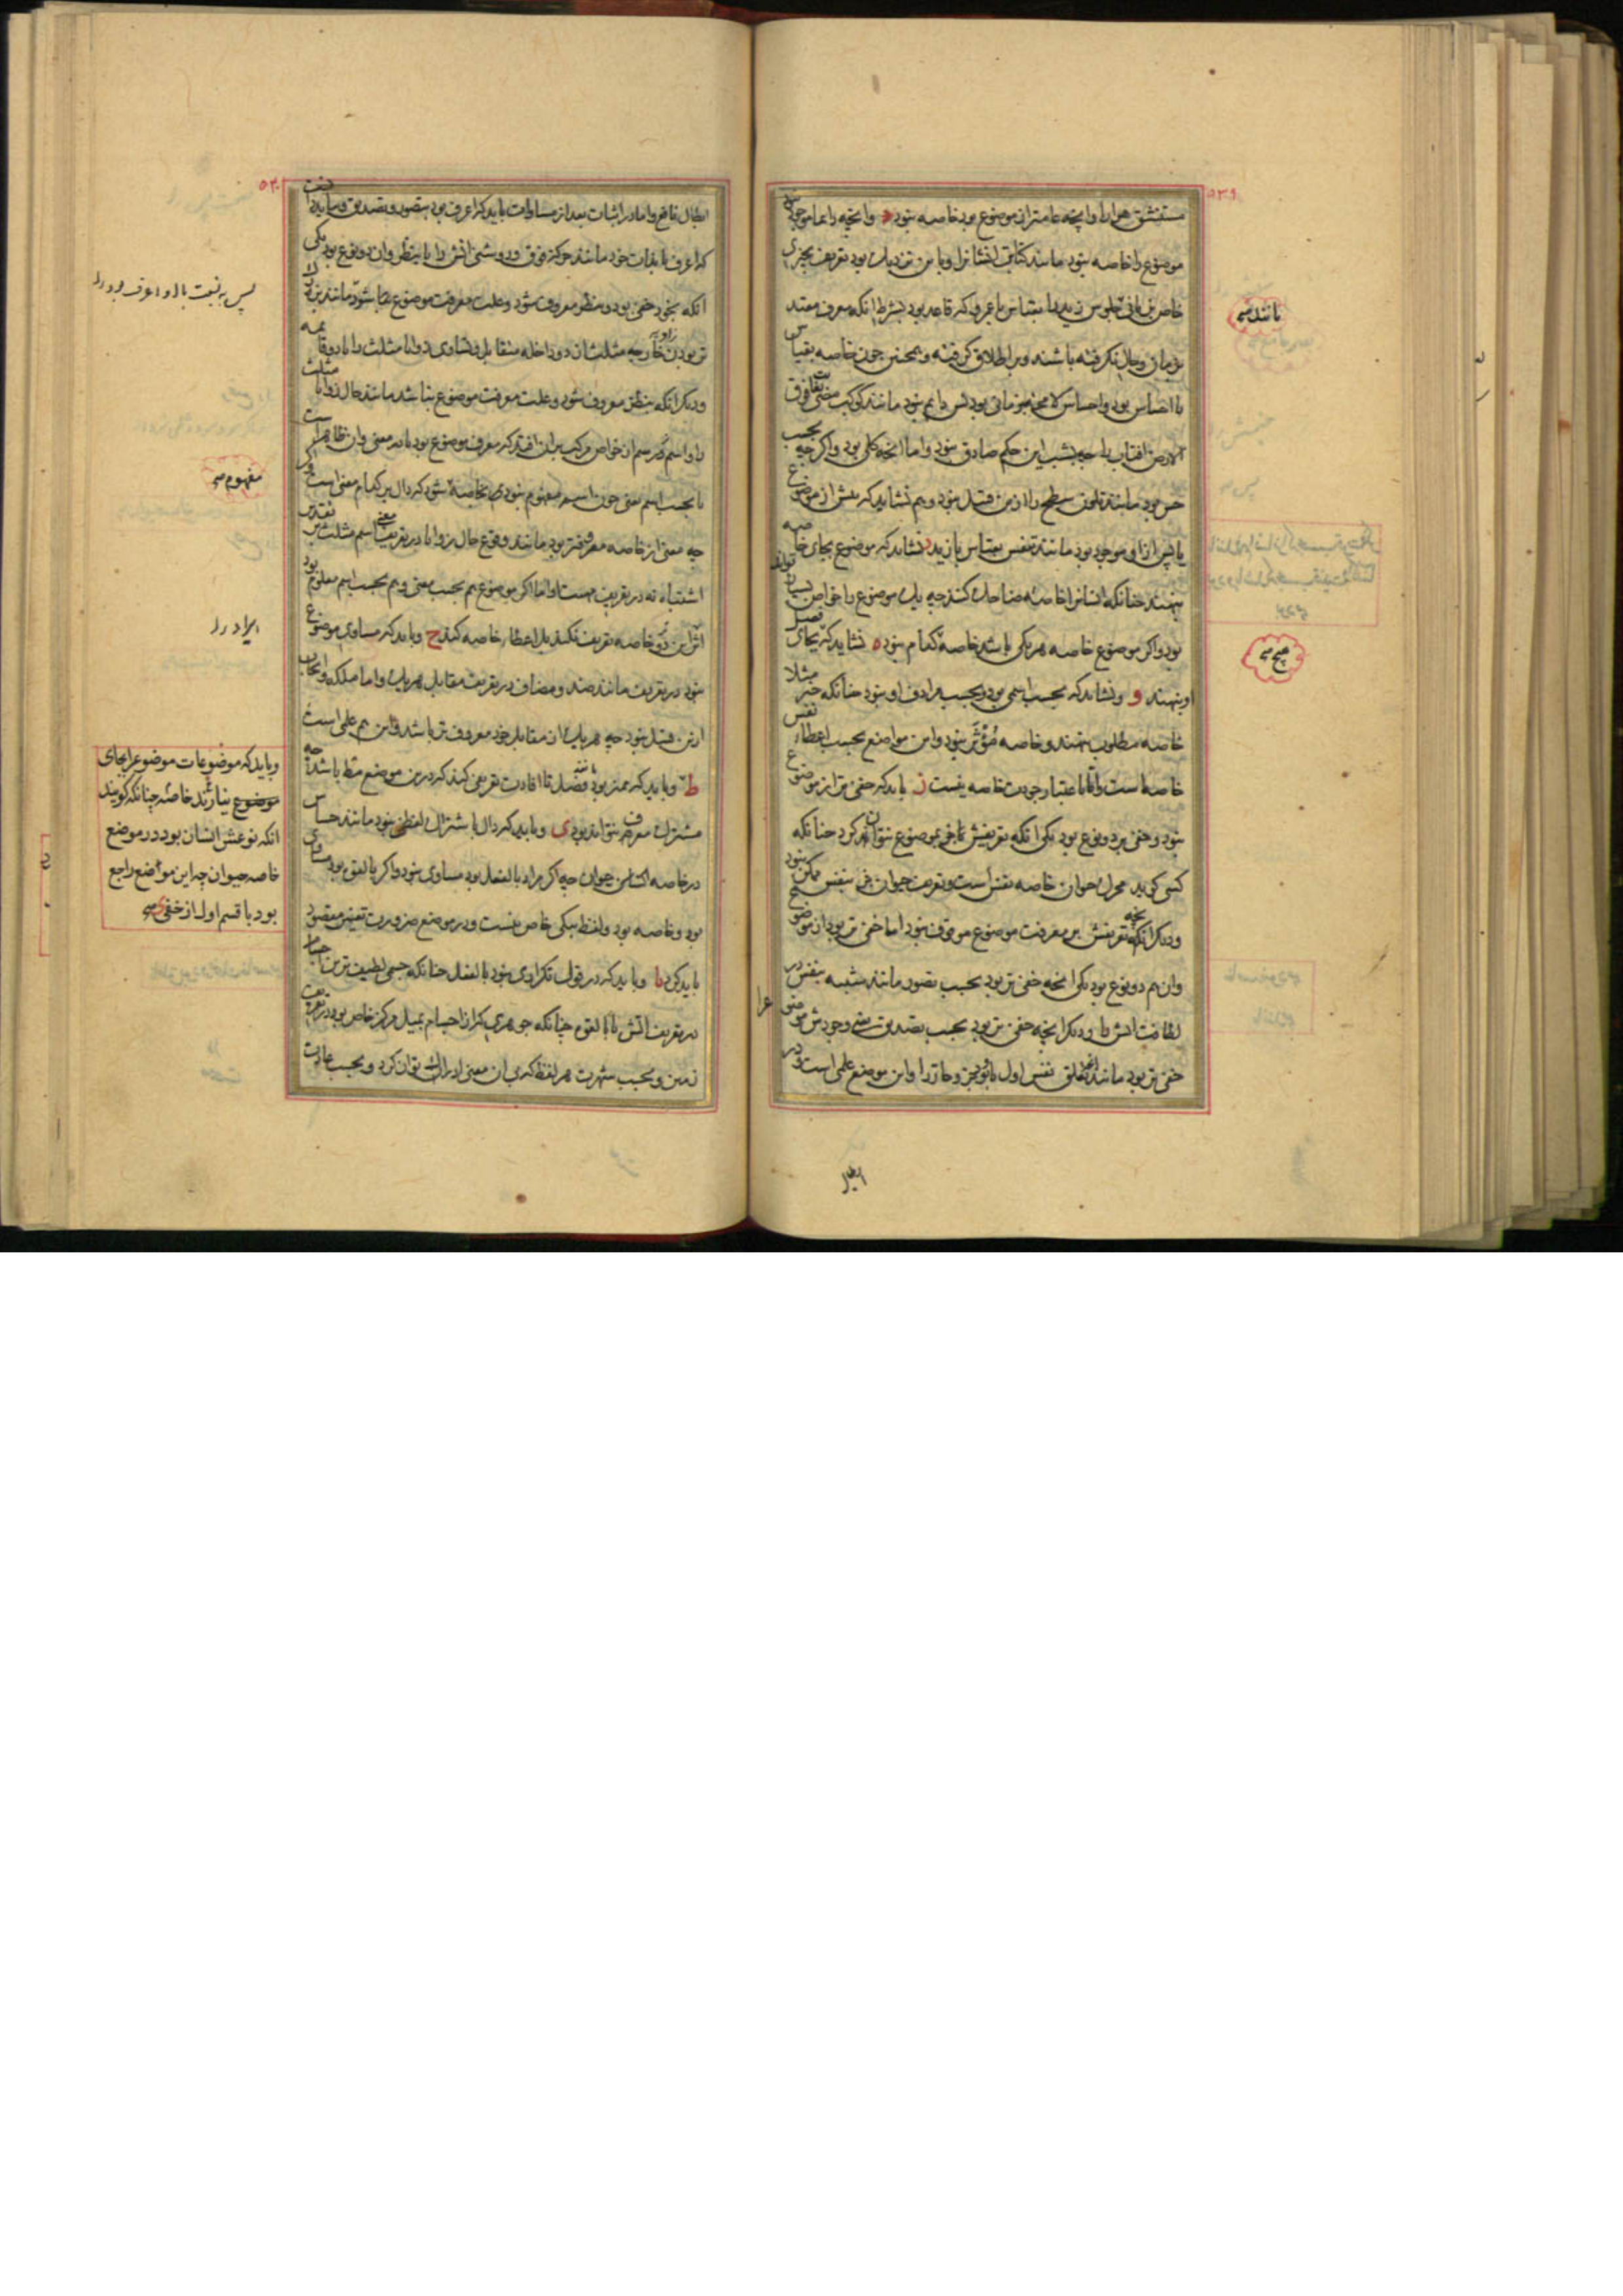 ٥٣٩
مستنشق هوا را وانچه عامتر از موضوع بود خاصه نبود وانچه دایما موجود نبود
موضوع را خاصه نبود مانند کتابت انسانرا و باین نزدیک بود تعریف بچیزی
خاص بزمانی جلوس زید را بقیاس با عمرو که قاعد بود بشرط انکه معرف مقید
بزمان وحال نگرفته باشند وبر اطلاق گرفته وهمچنین چون خاصه بقیاس
با احساس بود واحساس لامحه بزمانی بود پس دایم نبود مانند کوکب مضئ فوق
الارض افتاب را چه بشب این حکم صادق نبود واما انچه کلی بود واگرچه بحسب
حس بود مانند تلون سطح را ازین قبیل نبود وهم نشاید که پیش از موضوع
یا پس ازو موجود بود مانند تنفس بقیاس با زید د نشاید که موضوع بجای خاصه
بنهند چنانکه انسانرا خاصه ضاحک کنند چه یک موضوع را خواص بسیار تواند
بود واگر موضوع خاصه هر یکی باشد خاصه کدام بود ه نشاید که بجای فصل
او بنهند و ونشاید که بحسب اسمی بود وبحسب مرادف او نبود چنانکه خیر مثلا
خاصه مطلوب نهند وخاصه مؤثر نبود واین مواضع بحسب اعطاء نفس
خاصهاست واما باعتبار جودت خاصه نیست ز باید که خفی تر از موضوع
نبود وخفی بر دو نوع بود یکی انکه تعریفش تماخر بموضوع نتواند کرد چنانکه
کسی گوید محرک حیوان خاصه نفس است وتعریف حیوان جز بنفس ممکن نبود
ودیگر انکه تعریفش بر معرفت موضوع موقوف نبود اما خفی تر بود از موضوع
وان هم دو نوع بود یکی انچه خفی تر بود بحسب تصور مانند شبیه بنفس در
لطافت اتش را ودیگر انچه خفی تر بود بحسب تصدیق یعنی وجودش موضوع را
خفی تر بود مانند تعلق نفس اول باو جزو حار را واین موضع علمی است در
ابطال
مانند صح
هیچ صح
٥٤٠
ابطال نافع واما در اثبات بعد از مساوات باید که اعرف بود بتصور وتصدیق وباید دانست
که اعرف یا بذات خود مانند حرکة فوق و روشنی اتش را یا بنظر وان دو نوع بود یکی
انکه بخود خفی بود وبنظر معروف شود وعلت معرفت موضوع بنا شود مانند بزرگ
تر بودن زاویه خارجه مثلث از دو داخله متقابل وتساوی زوایا مثلث را با دو قایمه
ودیگر انکه بنظر معروف شود وعلت معرفت موضوع بنا شد مانند حال زوایا مثلث
را واسم ورسم از خواص مرکب بران افتد که معرف موضوع بود یا بمعنی وان ظاهر است
یا بحسب اسم یعنی چون اسم مفهوم نبود بخاصه شود که دال بر کدام معنی است واگر
چه معنی از خاصه معروفتر بود مانند وقوع حال زوایا در تعریف معنی اسم مثلث بر تقدیر
اشتباه نه در تعریف مهیت او اما اگر موضوع هم بحسب معنی وهم بحسب اسم معلوم بود
اثر این دو خاصه تعریف نکند بل اعطاء خاصه کند ح وباید که مساوی موضوع
نبود در تعریف مانند ضد ومضاف در تعریف مقابل هر یک واما ملکه وایجاب
ازین قبیل نبود چه هر یک از مقابل خود معروف تر باشد واین هم علمی است
ط وباید که ممیز بود مانند فصل تا افادت تعریفی کند که درین موضع مط باشد چه
مشترک معرف نتواند بود ی وباید که دال باشتراک لفظی نبود مانند حساس
در خاصه اکساس حیوان چه اگر مراد بالفعل بود مساوی نبود واگر بالقوه بود مساوی
بود وخاصه بود ولفظ بیکی خاص نیست ودر موضع ضرورت تعیین مقصود
باید کرد یا وباید که در قول تکراری نبود بالفعل چنانکه جسمی لطیف ترین اجسام
در تعریف اتش یا بالقوه چنانکه جوهری که از اجسام بمیل مرکز خاص بود در تعریف
زمین وبحسب شهرت هر لفظ که بی ان معنی ادراک توان کرد وبحسب عادت
پس به نسبت با او اعرف بود را
مفهوم صح
ایراد را
وباید که موضوعات موضوع را بجای
موضوع نیارند خاصه چنانکه گویند
انکه نوعش انسان بود در موضع
خاصه حیوان چه این مواضع راجع
بود با قسم اول از خفی صح